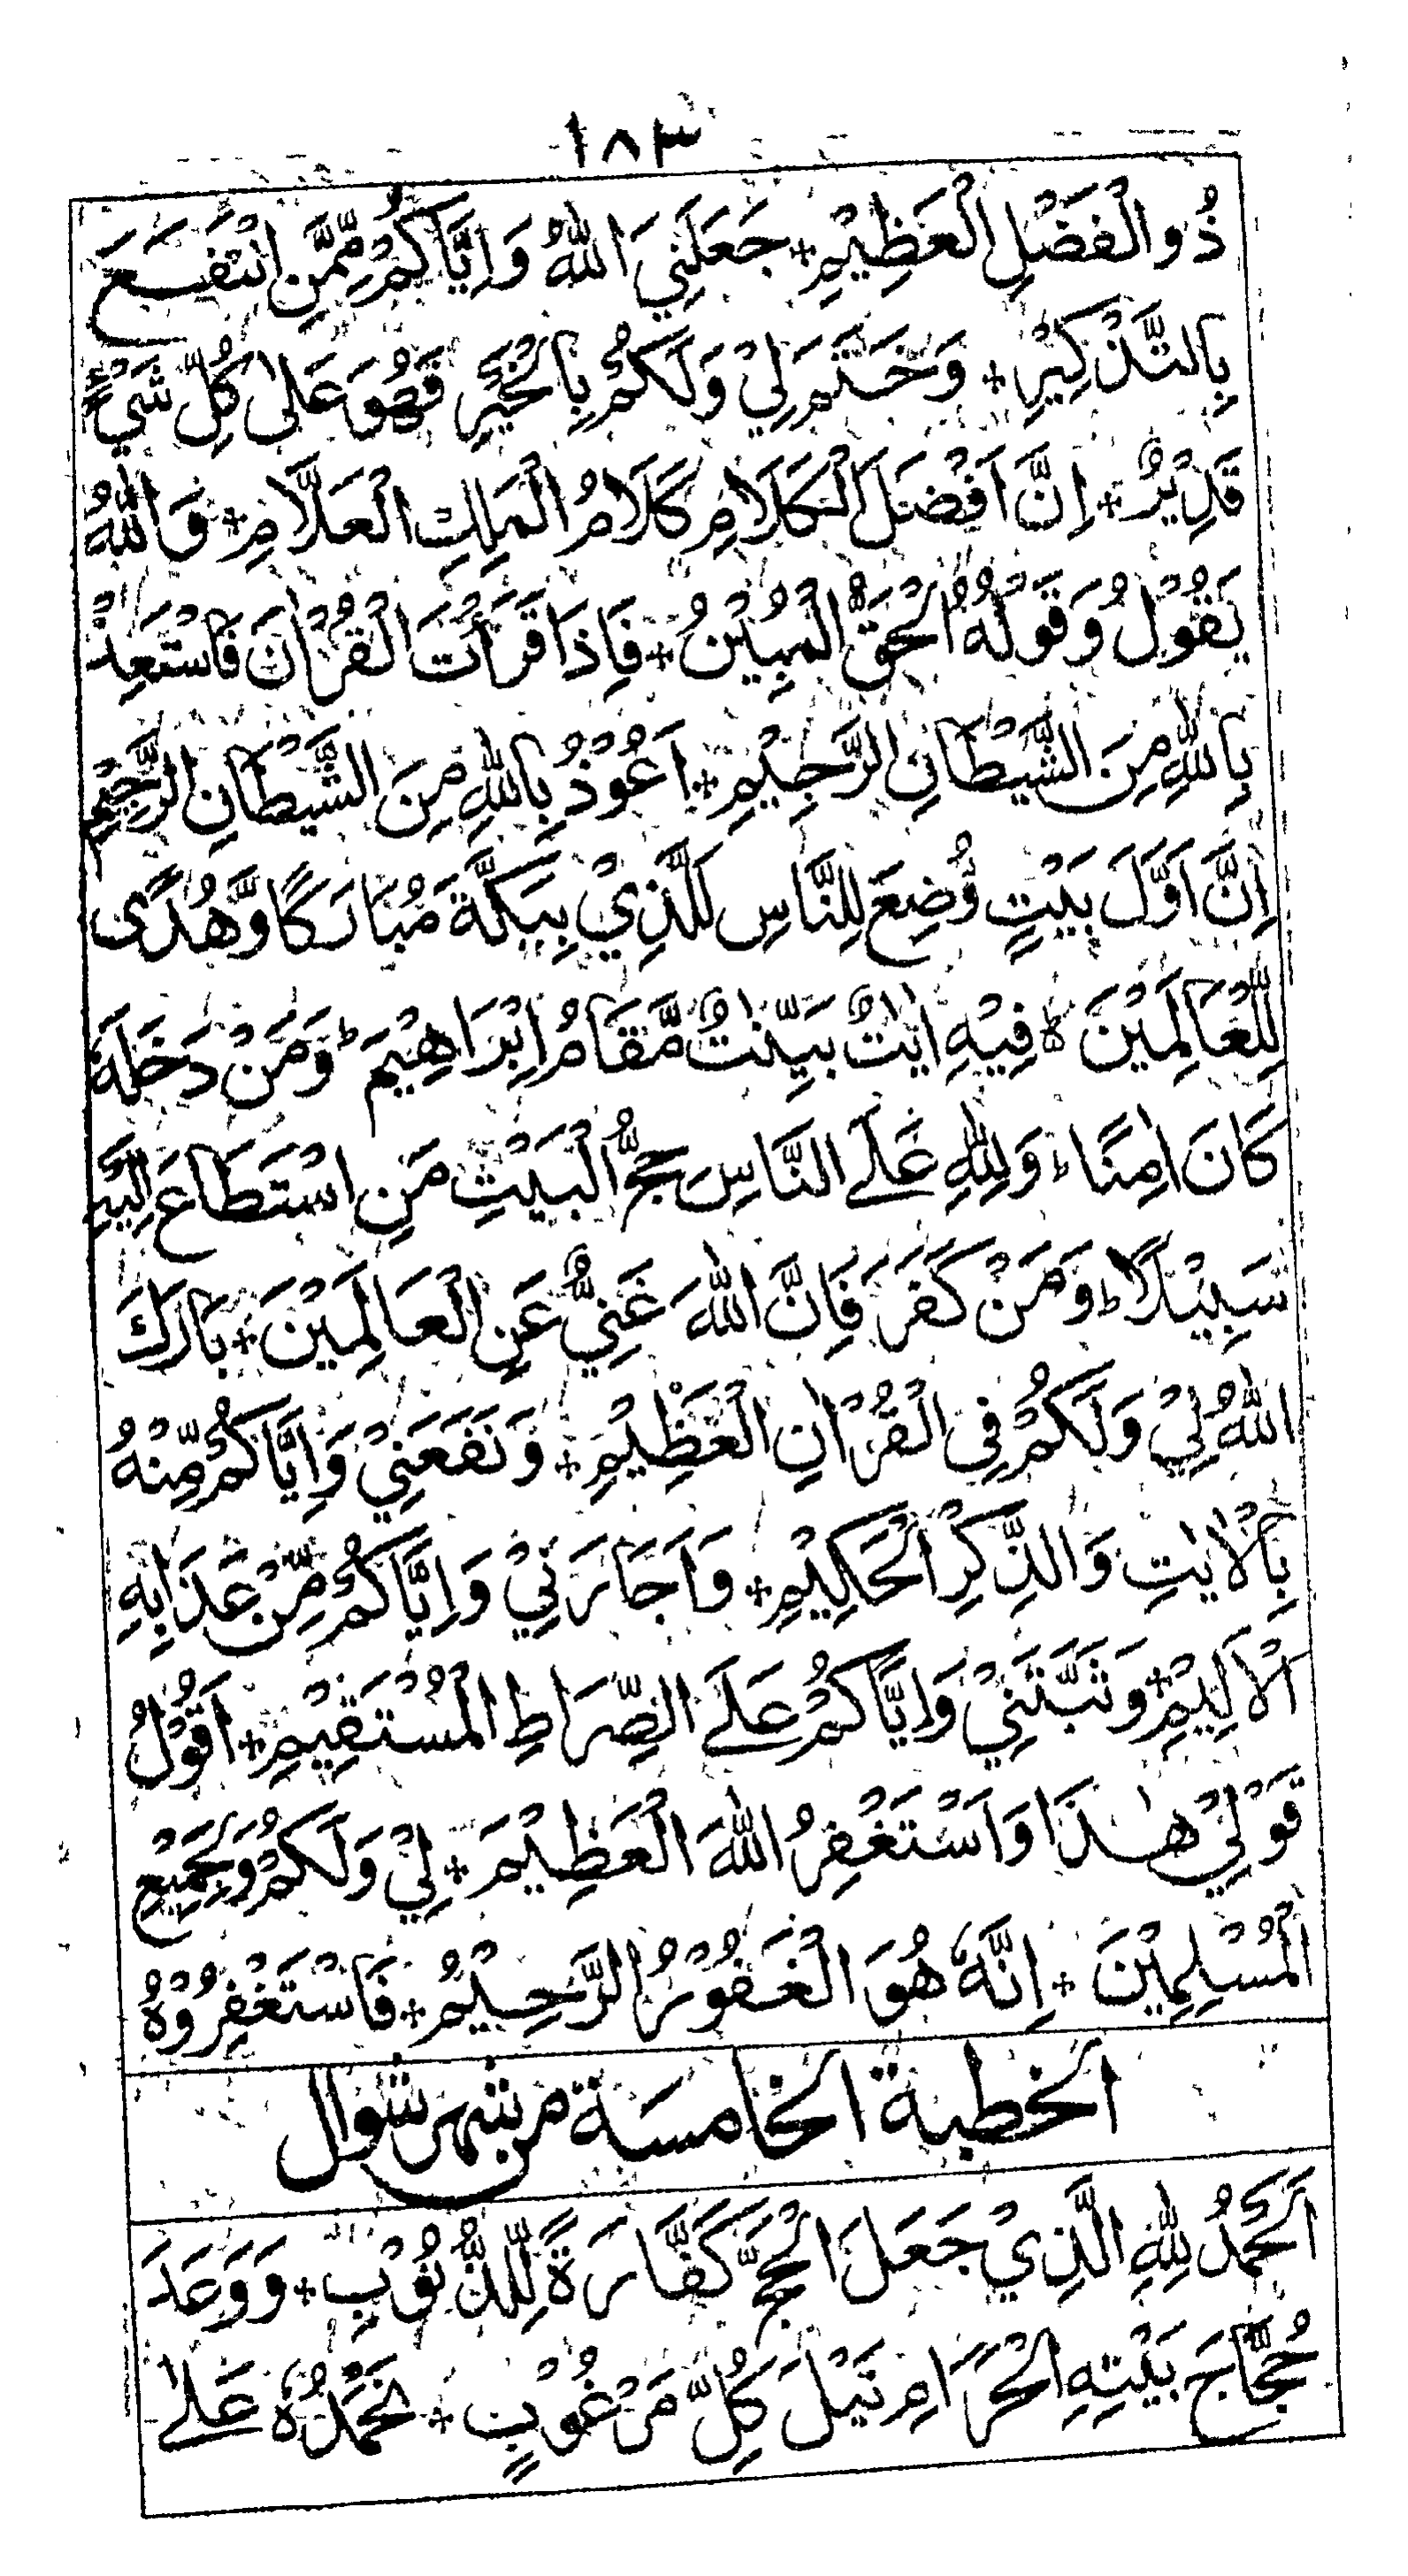 ١٨٣
ذُو الْفَضْلِ الْعَظِيْمِ + جَعَلَنِيَ اللّٰهُ وَاِيَّاكُمْ مِّمَّنِ انْتَفَعَ
بِالتَّذْكِيْرِ + وَخَتَمَ لِيْ وَلَكُمْ بِالْخَيْرِ فَهُوَ عَلٰى كُلِّ شَيْءٍ
قَدِيْرٌ + اِنَّ اَفْضَلَ الْكَلَامِ كَلَامُ الْمَلِكِ الْعَلَّامِ + وَاللّٰهُ
يَقُوْلُ وَقَوْلُهُ الْحَقُّ الْمُبِيْنُ + فَاِذَا قَرَأْتَ الْقُرْاٰنَ فَاسْتَعِذْ
بِاللّٰهِ مِنَ الشَّيْطَانِ الرَّجِيْمِ + اَعُوْذُ بِاللّٰهِ مِنَ الشَّيْطَانِ الرَّجِيْمِ
اِنَّ اَوَّلَ بَيْتٍ وُّضِعَ لِلنَّاسِ لَلَّذِيْ بِبَكَّةَ مُبَارَكًا وَّهُدًى
لِّلْعَالَمِيْنَ ۵ فِيْهِ اٰيٰتٌ بَيِّنٰتٌ مَّقَامُ اِبْرَاهِيْمَ ط وَمَنْ دَخَلَهٗ
كَانَ اٰمِنًا ط وَلِلّٰهِ عَلَى النَّاسِ حِجُّ الْبَيْتِ مَنِ اسْتَطَاعَ اِلَيْهِ
سَبِيْلًا ط وَمَنْ كَفَرَ فَاِنَّ اللّٰهَ غَنِيٌّ عَنِ الْعَالَمِيْنَ + بَارَكَ
اللّٰهُ لِيْ وَلَكُمْ فِي الْقُرْاٰنِ الْعَظِيْمِ + وَنَفَعَنِيْ وَاِيَّاكُمْ مِّنْهُ
بِالْاٰيٰتِ وَالذِّكْرِ الْحَكِيْمِ + وَاَجَارَنِيْ وَاِيَّاكُمْ مِّنْ عَذَابِهِ
الْاَلِيْمِ + وَثَبَّتَنِيْ وَاِيَّاكُمْ عَلَى الصِّرَاطِ الْمُسْتَقِيْمِ + اَقُوْلُ
قَوْلِيْ هٰذَا وَاَسْتَغْفِرُ اللّٰهَ الْعَظِيْمَ + لِيْ وَلَكُمْ وَلِجَمِيْعِ
الْمُسْلِمِيْنَ + اِنَّهٗ هُوَ الْغَفُوْرُ الرَّحِيْمُ + فَاسْتَغْفِرُوْهُ
الخطبة الخامسة من شهر شوال
اَلْحَمْدُ لِلّٰهِ الَّذِيْ جَعَلَ الْحَجَّ كَفَّارَةً لِّلذُّنُوْبِ + وَوَعَدَ
حُجَّاجَ بَيْتِهِ الْحَرَامِ نَيْلَ كُلِّ مَرْغُوْبٍ + نَحْمَدُهٗ عَلٰى